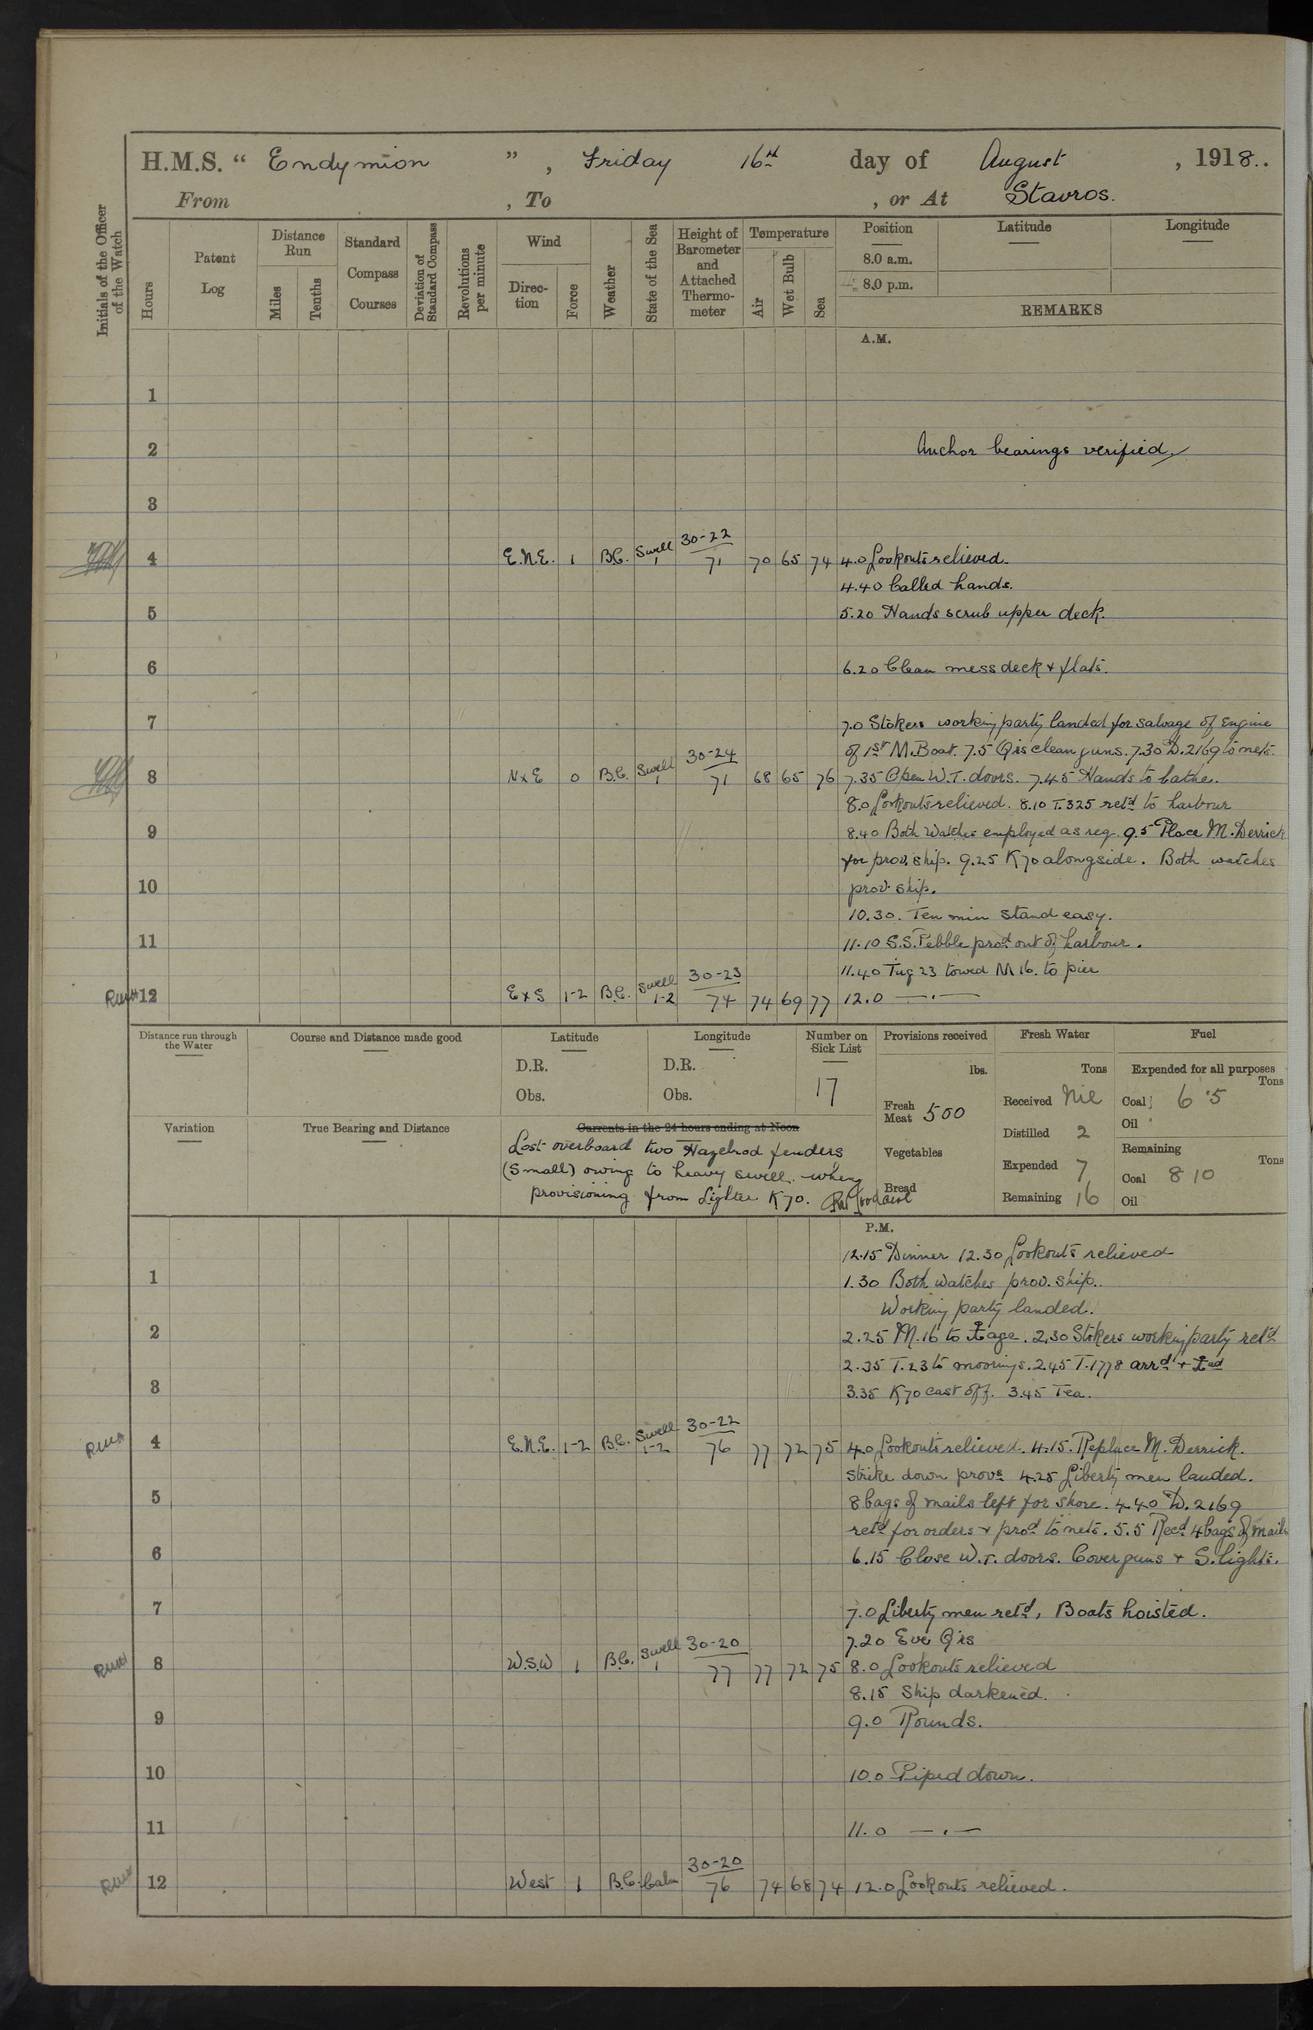 H.M.S. " Endymion " , Friday 16th day of August , 1918..
From , To , or At Stavros.
Initials of the Officer of the Watch
Hours
Patent Log
Distance Run
Miles
Tenths
Standard Compass Courses
Deviation of Standard Compass
Revolutions per minute
Wind
Direction
Force
Weather
State of the Sea
Height of Barometer and Attached Thermometer
Temperature
Air
Wet Bulb
Sea
Position
8.0 a.m.
8.0 p.m.
Latitude
Longitude
REMARKS
A.M.
1
2 Anchor bearings verified
3
4 E.N.E. 1 B.C. Swell 1 30-22 71 70 65 74 4.0 Lookouts relieved.
4.40 Called hands.
5 5.20 Hands scrub upper deck.
6 6.20 Clean mess deck + flats.
7 7.0 Stokers working party landed for salvage of Engine
of 1st M.Boat. 7.5 Qrs clean guns. 7.30 D.2169 to nets.
8 N x E 0 B.C. Swell 1 30-24 71 68 65 76 7.35 Open W.T. doors. 7.45 Hands to bathe.
8.0 Lookouts relieved. 8.10 T.325 retd to harbour
9 8.40 Both Watches employed as req. 9.5 Place M.Derrick
for prov. ship. 9.25 K70 alongside. Both watches
10 prov. ship.
10.30. Ten min stand easy.
11 11.10 S.S. Pebble procd out of harbour.
11.40 Tug 23 towed M 16. to pier
12 E x S 1-2 B.C. Swell 1-2 30-23 74 74 69 77 12.0 — . —
Distance run through the Water
Course and Distance made good
Latitude
D.R.
Obs.
Longitude
D.R.
Obs.
Number on Sick List
17
Provisions received
lbs.
Fresh Meat 500
Vegetables
Bread
Fresh Water
Tons
Received Nil
Distilled 2
Expended 7
Remaining 16
Fuel
Expended for all purposes
Tons
Coal 6.5
Oil
Remaining
Tons
Coal 810
Oil
Variation
True Bearing and Distance
Currents in the 24 hours ending at Noon
Lost overboard two Hazelrod fenders
(Small) owing to heavy swell. when
provisioning from Lighter K70.
P.M.
12.15 Dinner 12.30 Lookouts relieved
1 1.30 Both watches prov. ship.
Working party landed.
2 2.25 M.16 to ⚓age. 2.30 Stokers working party retd
2.35 T.23 to moorings. 2.45 T.1778 arrd + ⚓ed
3 3.35 K70 cast off. 3.45 Tea.
4 E.N.E. 1-2 B.C. Swell 1-2 30-22 76 77 72 75 4.0 Lookouts relieved. 4.15. Replace M. Derrick.
strike down provs. 4.25 Liberty men landed.
5 8 bags of mails left for shore. 4.40 D.2169
retd for orders + procd to nets. 5.5 Recd 4 bags of mails
6 6.15 Close W.T. doors. Cover guns + S. lights.
7 7.0 Liberty men retd, Boats hoisted.
7.20 Eve Qrs
8 W.S.W 1 B.C. Swell 1 30-20 77 77 72 75 8.0 Lookouts relieved
8.15 Ship darkened.
9 9.0 Rounds.
10 10.0 Piped down.
11 11.0 — . —
12 West 1 B.C. Calm 30-20 76 74 68 74 12.0 Lookouts relieved.